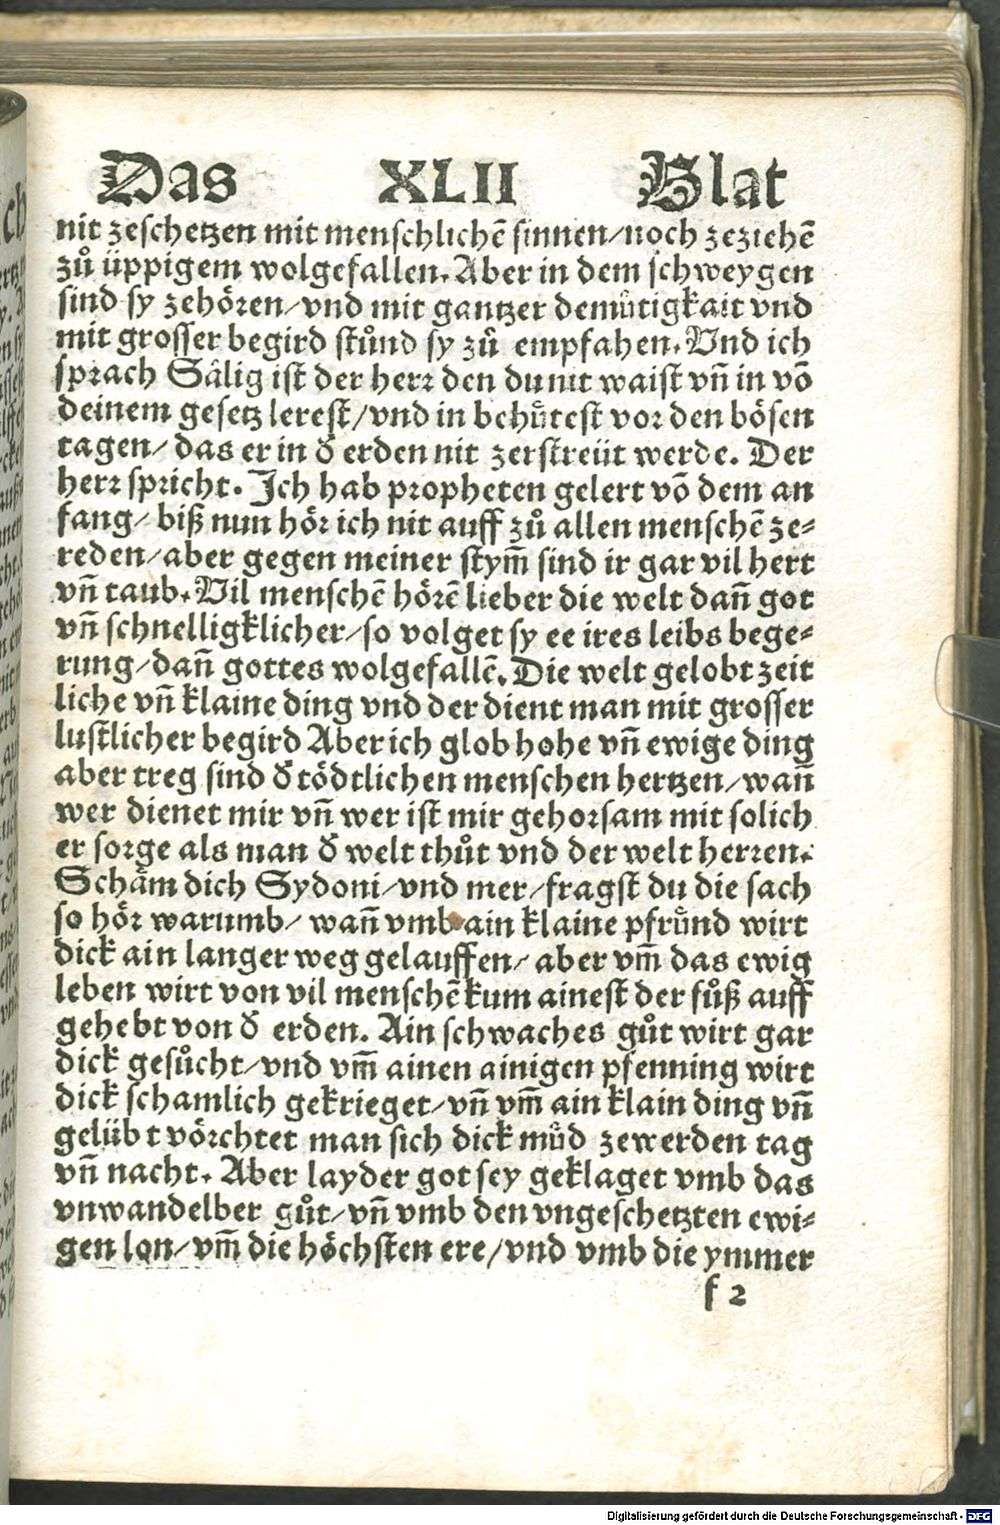 Das XLII Blat
nit zeschetzen mit menschlichẽ sinnen/noch zeziehẽ
zů üppigem wolgefallen. Aber in dem schweygen
sind sy zehören/vnd mit gantzer demůtigkait vnd
mit grosser begird stůnd sy zů empfahen. Vnd ich
sprach Sälig ist der herr den du nit waist vñ in võ
deinem gesetz lerest/vnd in behůtest vor den bösen
tagen/ das er in d̕ erden nit zerstreüt werde. Der
herr spricht. Ich hab propheten gelert võ dem an
fang/ biß nun hör ich nit auff zů allen menschẽ ze⸗
reden/aber gegen meiner stym̃ sind ir gar vil hert
vñ taub. Vil menschẽ hörẽ lieber die welt dañ got
vñ schnelligklicher/so volget sy ee ires leibs bege⸗
rung/dañ gottes wolgefallẽ. Die welt gelobt zeit
liche vñ klaine ding vnd der dient man mit grosser
lustlicher begird Aber ich glob hohe vñ ewige ding
aber treg sind d̕ tödtlichen menschen hertzen/wañ
wer dienet mir vñ wer ist mir gehorsam mit solich
er sorge als man d̕ welt thůt vnd der welt herren.
Schäm dich Sydoni/vnd mer/fragst du die sach
so hör warumb/ wañ vmb ain klaine pfrůnd wirt
dick ain langer weg gelauffen/ aber vm̃ das ewig
leben wirt von vil menschẽ kum ainest der fůß auff
gehebt von d̕ erden. Ain schwaches gůt wirt gar
dick gesůcht/vnd vm̃ ainen ainigen pfenning wirt
dick schamlich gekrieget/vñ vm̃ ain klain ding vñ
gelübt vörchtet man sich dick můd zewerden tag
vñ nacht. Aber layder got sey geklaget vmb das
vnwandelber gůt/vñ vmb den vngeschetzten ewi⸗
gen lon/vm̃ die höchsten ere/vnd vmb die ymmer
f 2
Digitalisierung gefördert durch die Deutsche Forschungsgemeinschaft - DFG